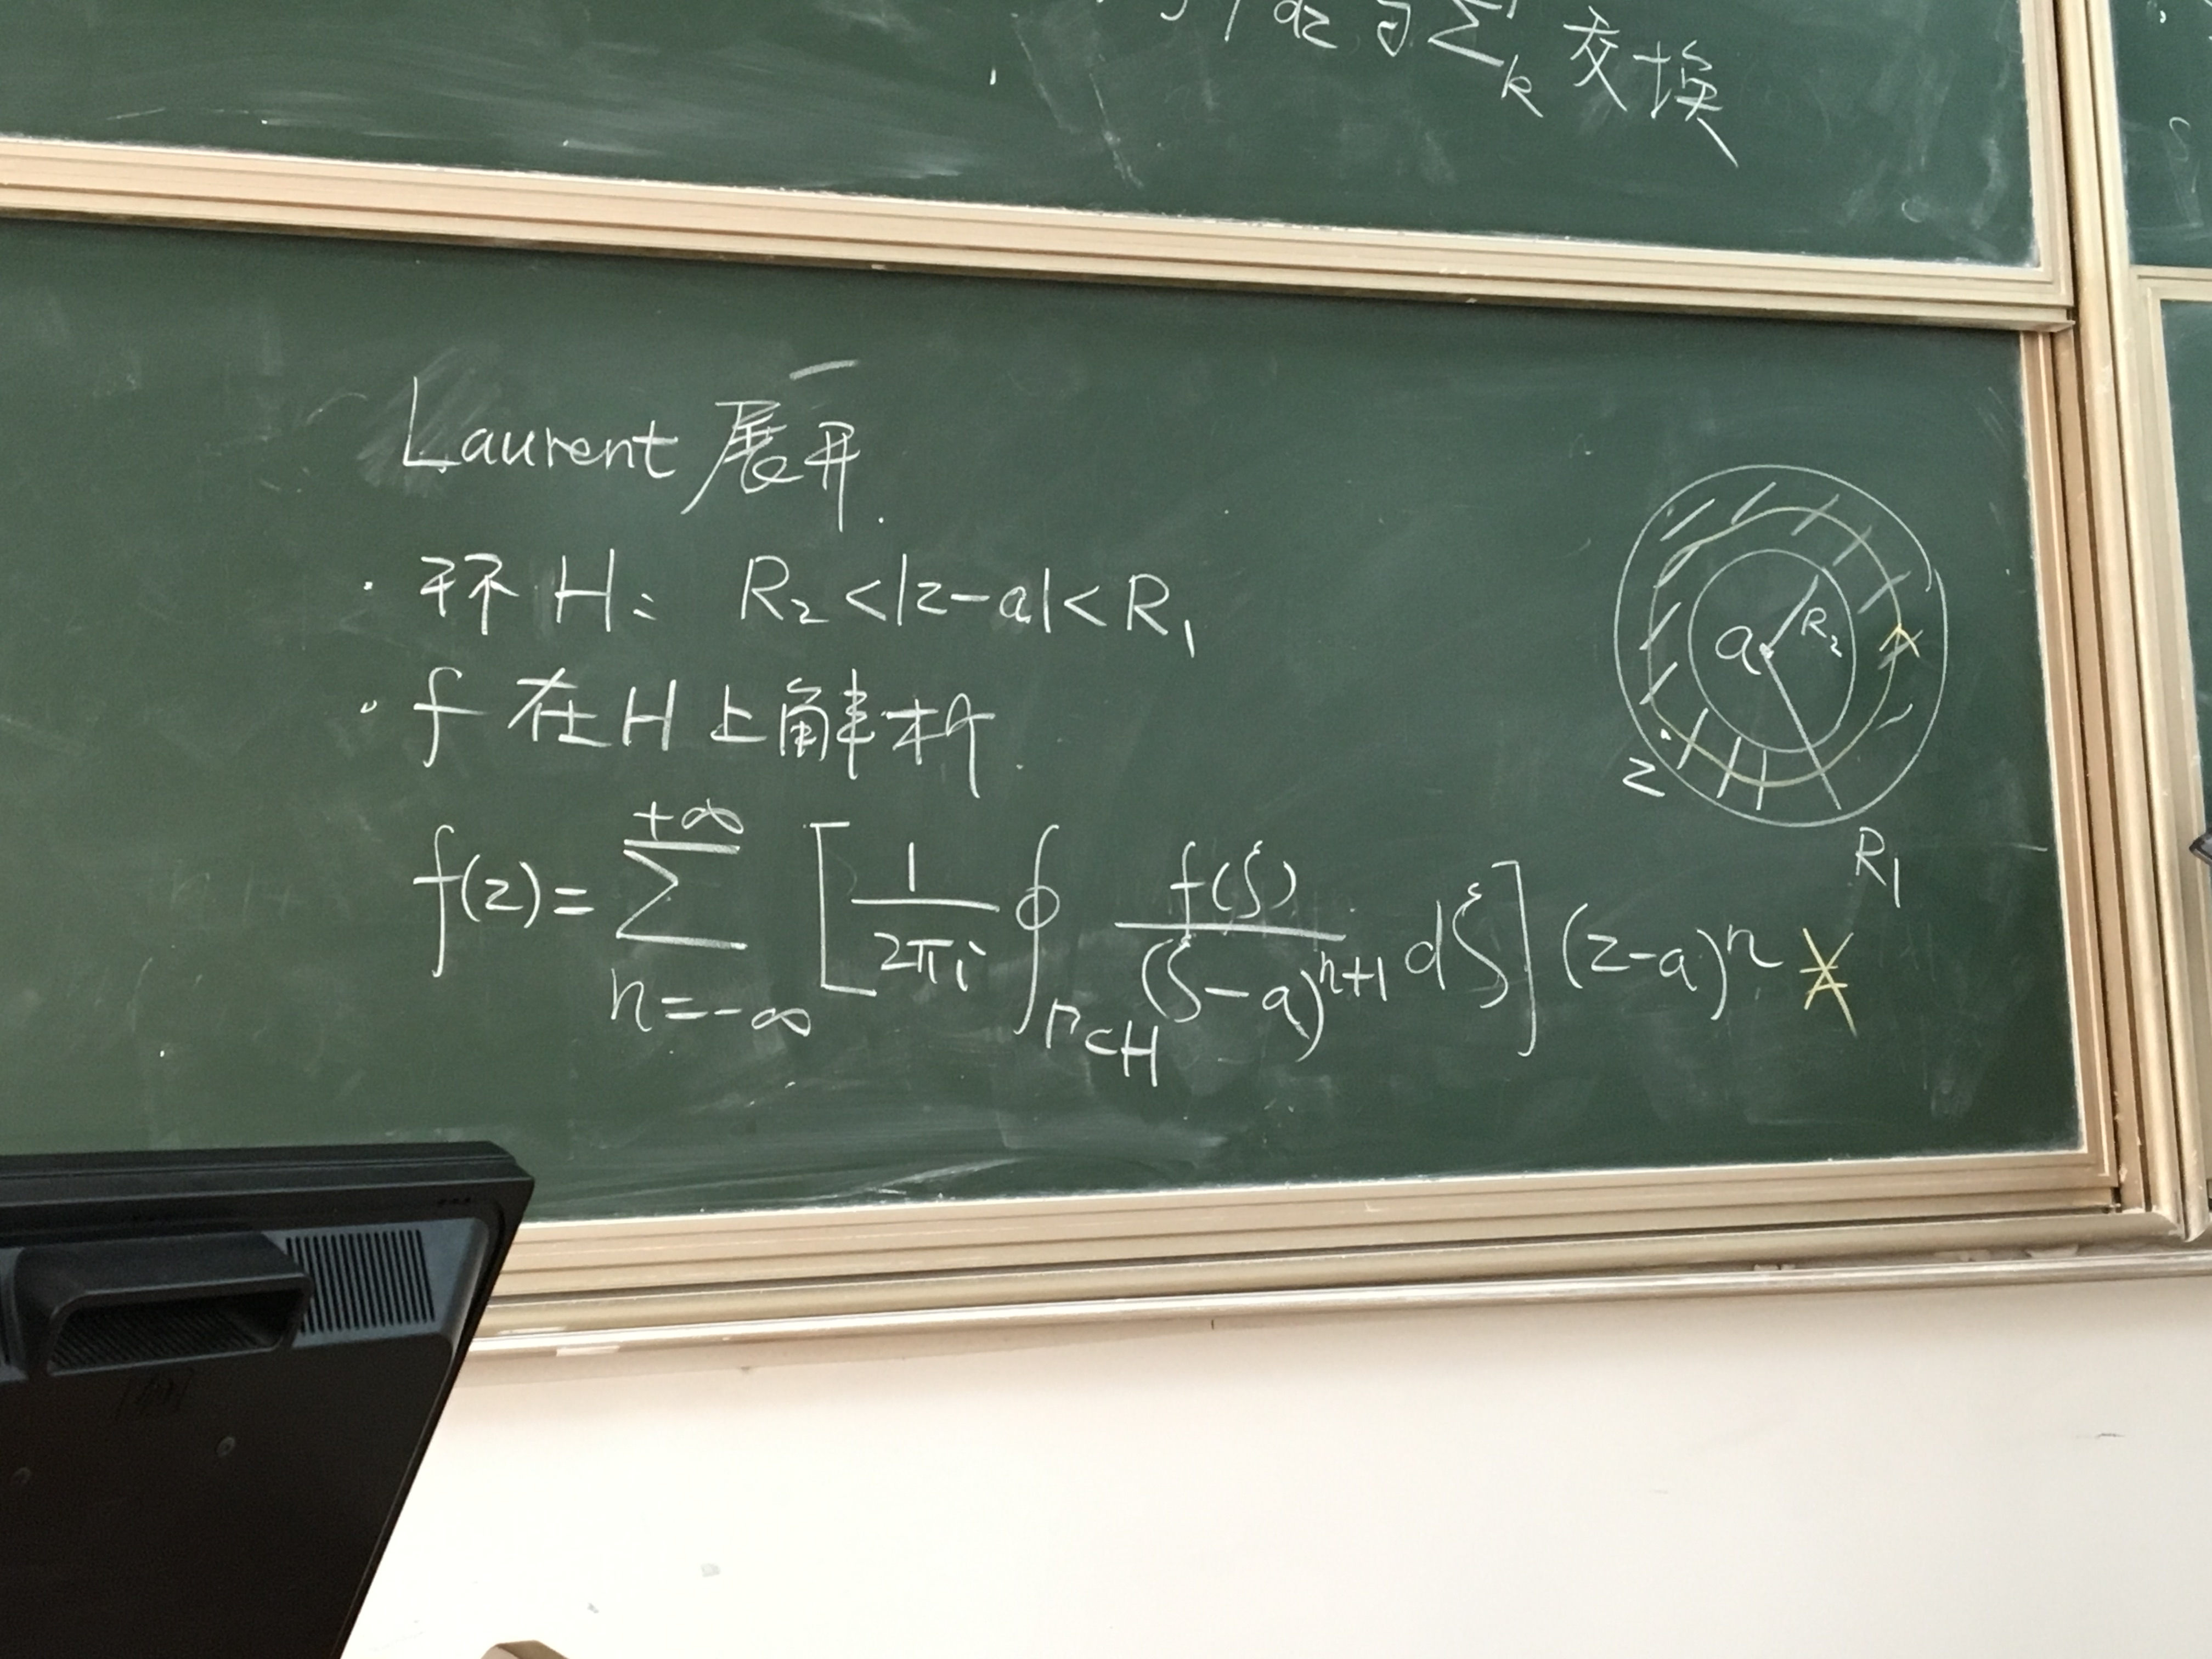 dz 与 Σ_k 交换
Laurent 展开.
· 环 H: R₂ < |z-a| < R₁
· f 在 H 上解析.
f(z) = \sum_{n=-∞}^{+∞} [ \frac{1}{2πi} \oint_{Γ⊂H} \frac{f(ζ)}{(ζ-a)^{n+1}} dζ ] (z-a)^n
a R₂
z
R₁